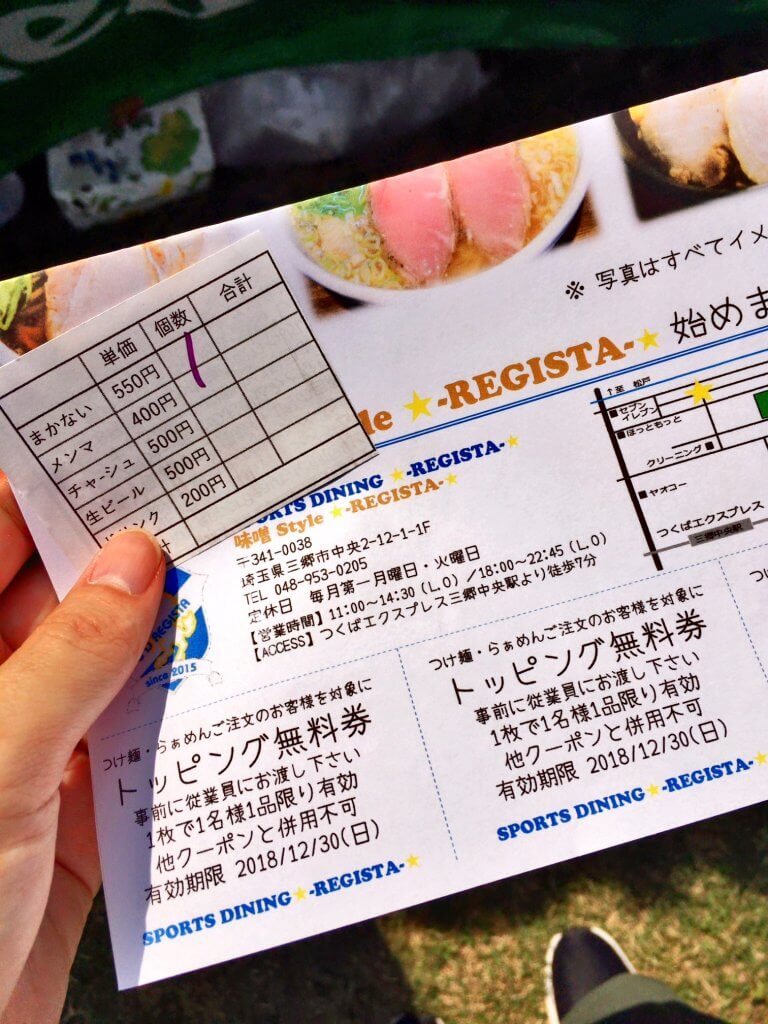 ※ 写真はすべてイメ
-REGISTA- 始めま
単価 個数 合計
まかない 550円 1
メンマ 400円
チャーシュ 500円
生ビール 500円
200円
SPORTS DINING -REGISTA-
味噌 Style -REGISTA-
〒341-0038
埼玉県三郷市中央2-12-1-1F
TEL 048-953-0205
定休日 毎月第一月曜日・火曜日
【営業時間】11:00~14:30(L.O)/18:00~22:45(L.O)
【ACCESS】つくばエクスプレス三郷中央駅より徒歩7分
↑至 松戸
セブン
イレブン
ほっともっと
クリーニング
ヤオコー
つくばエクスプレス
三郷中央駅
REGISTA
since 2015
つけ麺・らぁめんご注文のお客様を対象に
トッピング無料券
事前に従業員にお渡し下さい
1枚で1名様1品限り有効
他クーポンと併用不可
有効期限 2018/12/30(日)
SPORTS DINING -REGISTA-
つけ麺・らぁめんご注文のお客様を対象に
トッピング無料券
事前に従業員にお渡し下さい
1枚で1名様1品限り有効
他クーポンと併用不可
有効期限 2018/12/30(日)
SPORTS DINING -REGISTA-